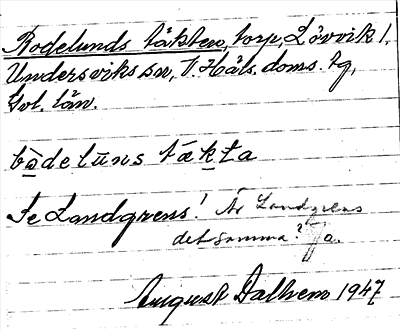 Rodelunds täkten, torp, Lövvik 1,
Undersviks sn, V. Häls. doms. tg,
Gvl. län.
bɑ̀delūns tækta
Se Landgrens! Är Landgrens
det samma? Ja.
August Dalhem 1947